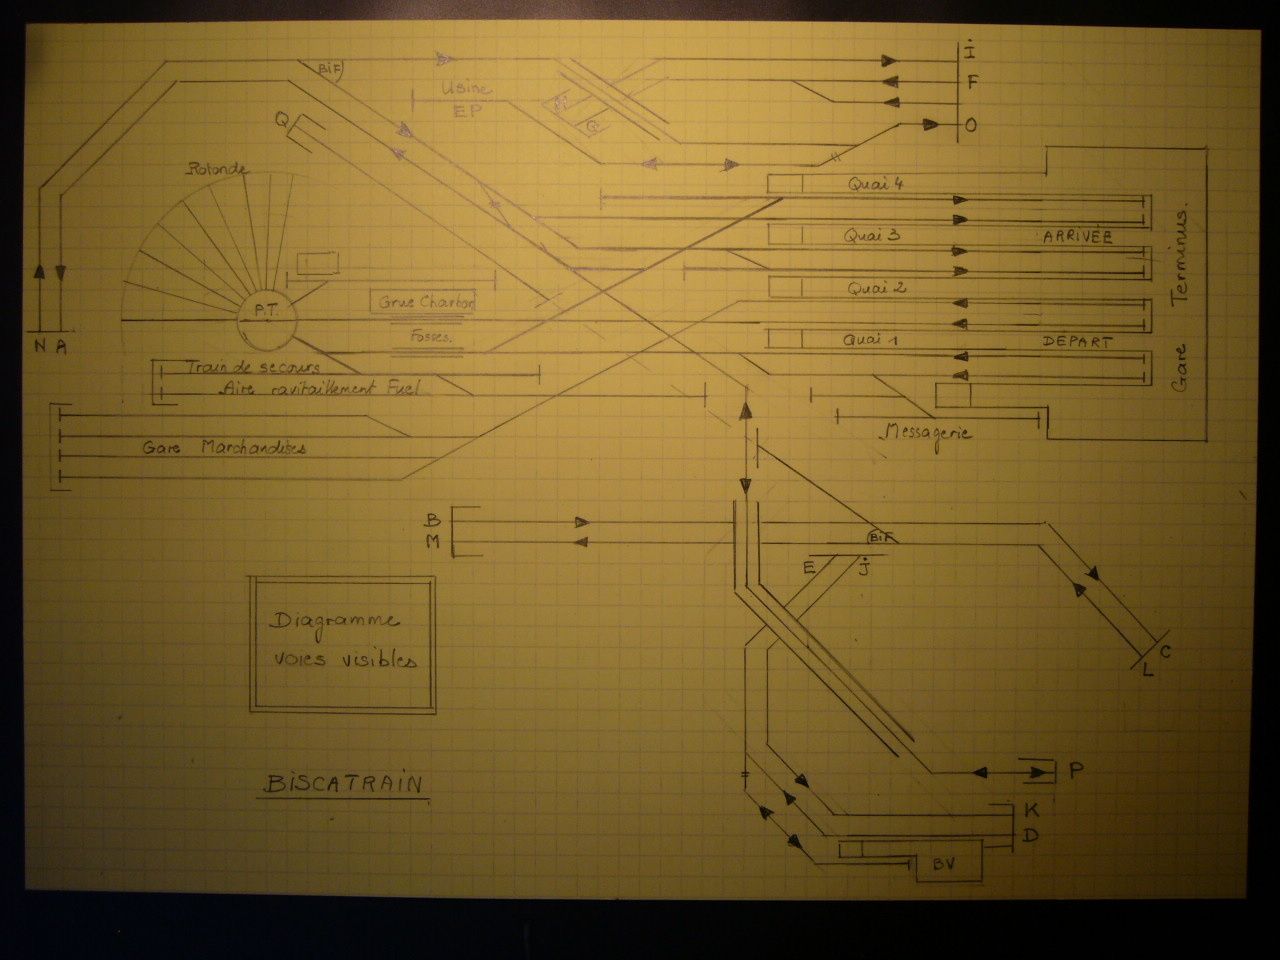 BIF
Usine
EP
I
F
O
Q
G
Rotonde
Quai 4
Quai 3
ARRIVÉE
Quai 2
Quai 1
DÉPART
Gare Terminus.
P.T.
Grue Charbon
Fosses.
N
A
Train de secours
Aire ravitaillement Fuel
Gare Marchandises
Messagerie
B
M
BIF
E
J
C
L
Diagramme
voies visibles
BISCATRAIN
P
K
D
BV